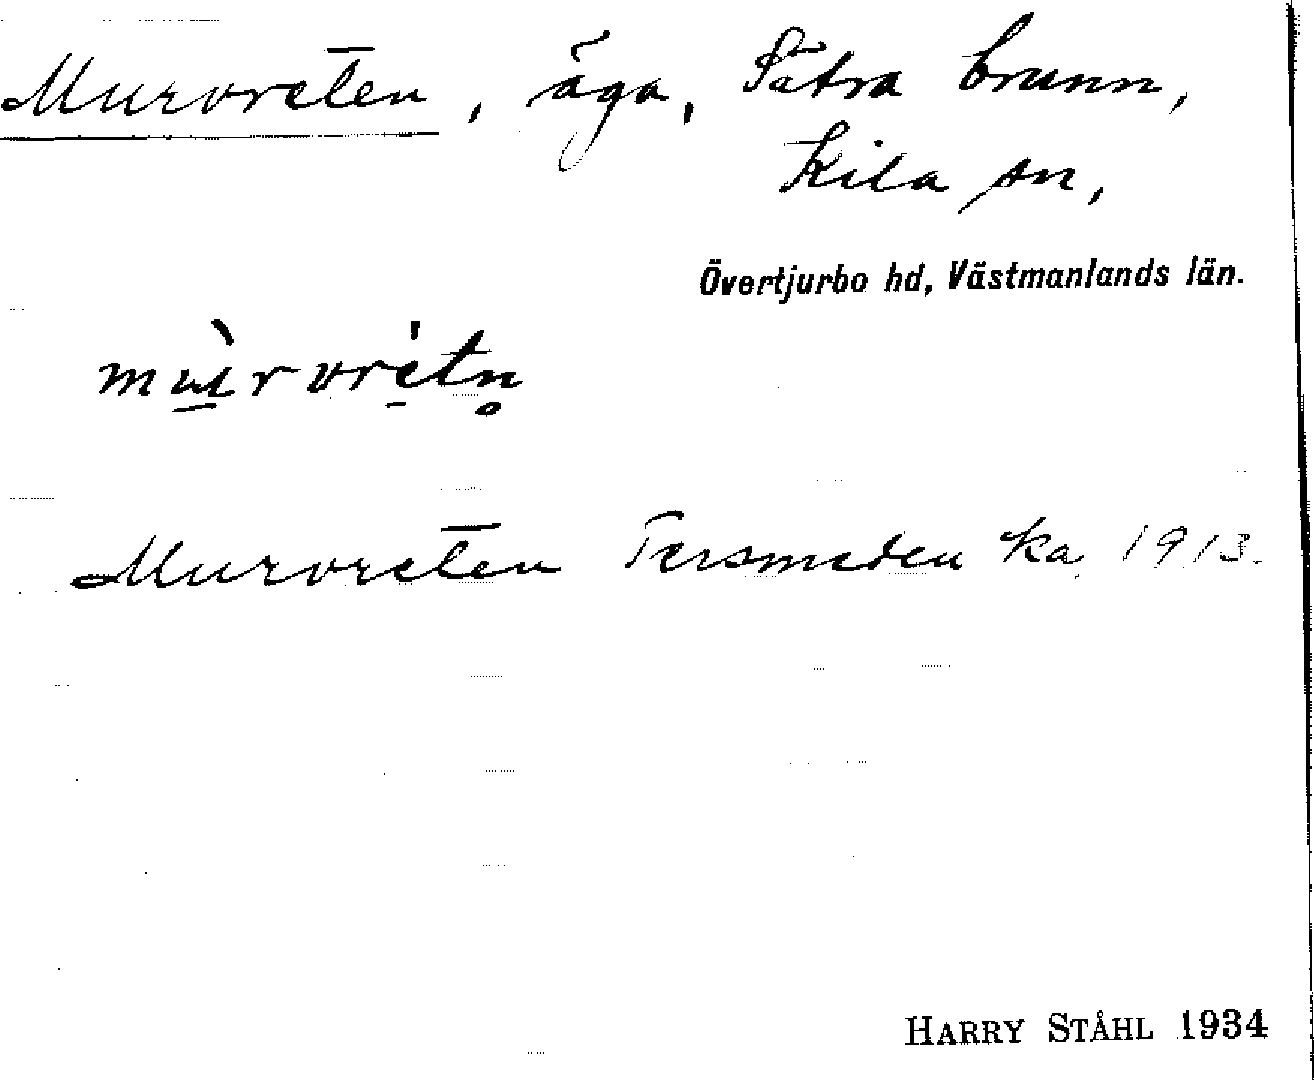 Murvreten, äga, Sätra brunn,
Kila sn,
Övertjurbo hd, Västmanlands län.
mùrvrétn̥
Murvreten Tersmeden ka 1913.
HARRY STÅHL 1934